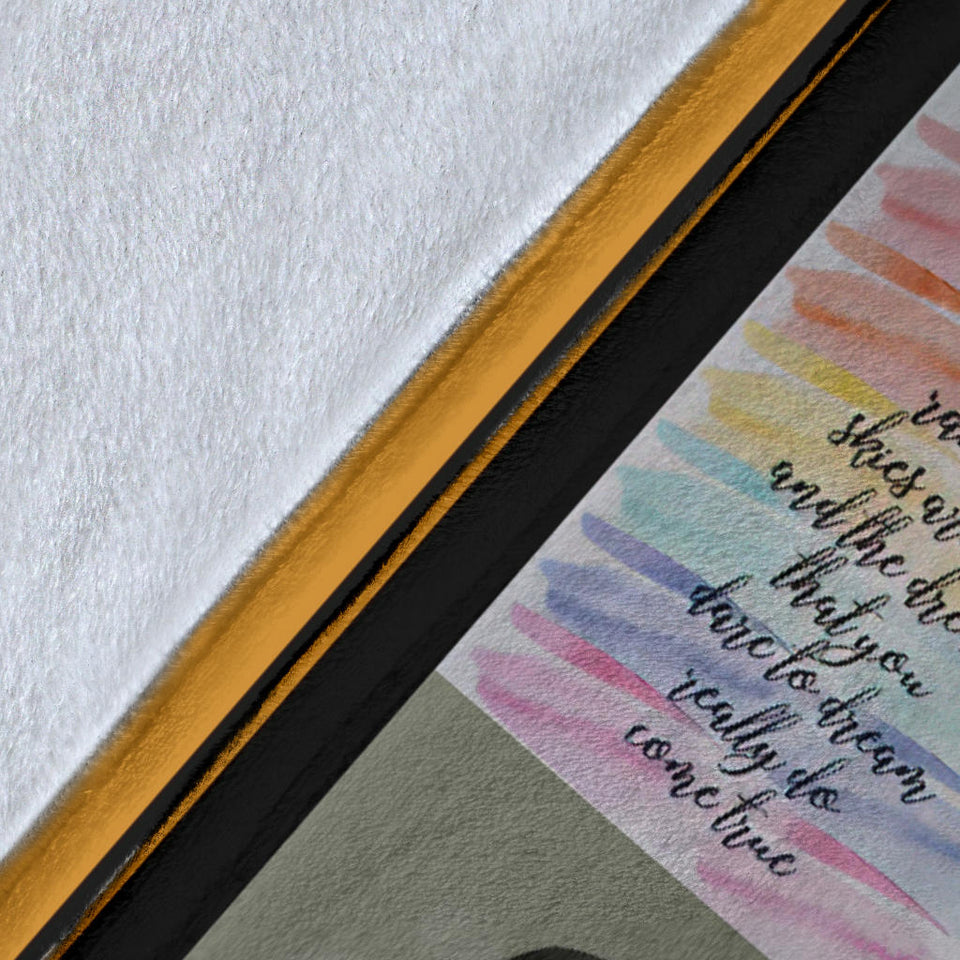 skies ar
and the dre
that you
dare to dream
really do
come true